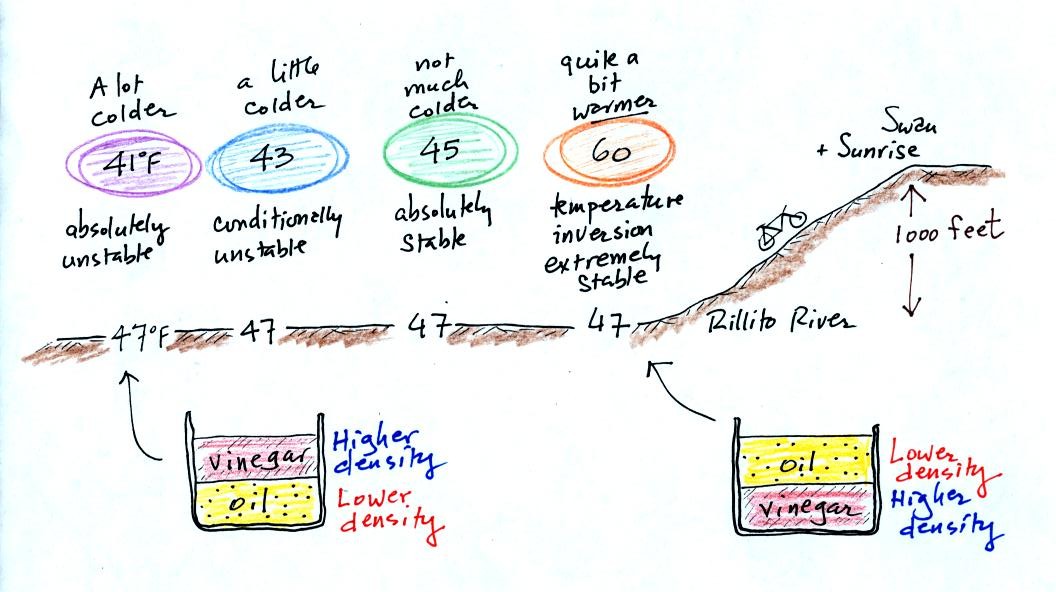 A lot
colder
a little
colder
not
much
colder
quite a
bit
warmer
41°F
43
45
60
Swan
+ Sunrise
absolutely
unstable
conditionally
unstable
absolutely
Stable
temperature
inversion
extremely
Stable
1000 feet
47°F
47
47
47
Rillito River
vinegar
oil
Higher
density
Lower
density
oil
vinegar
Lower
density
Higher
density